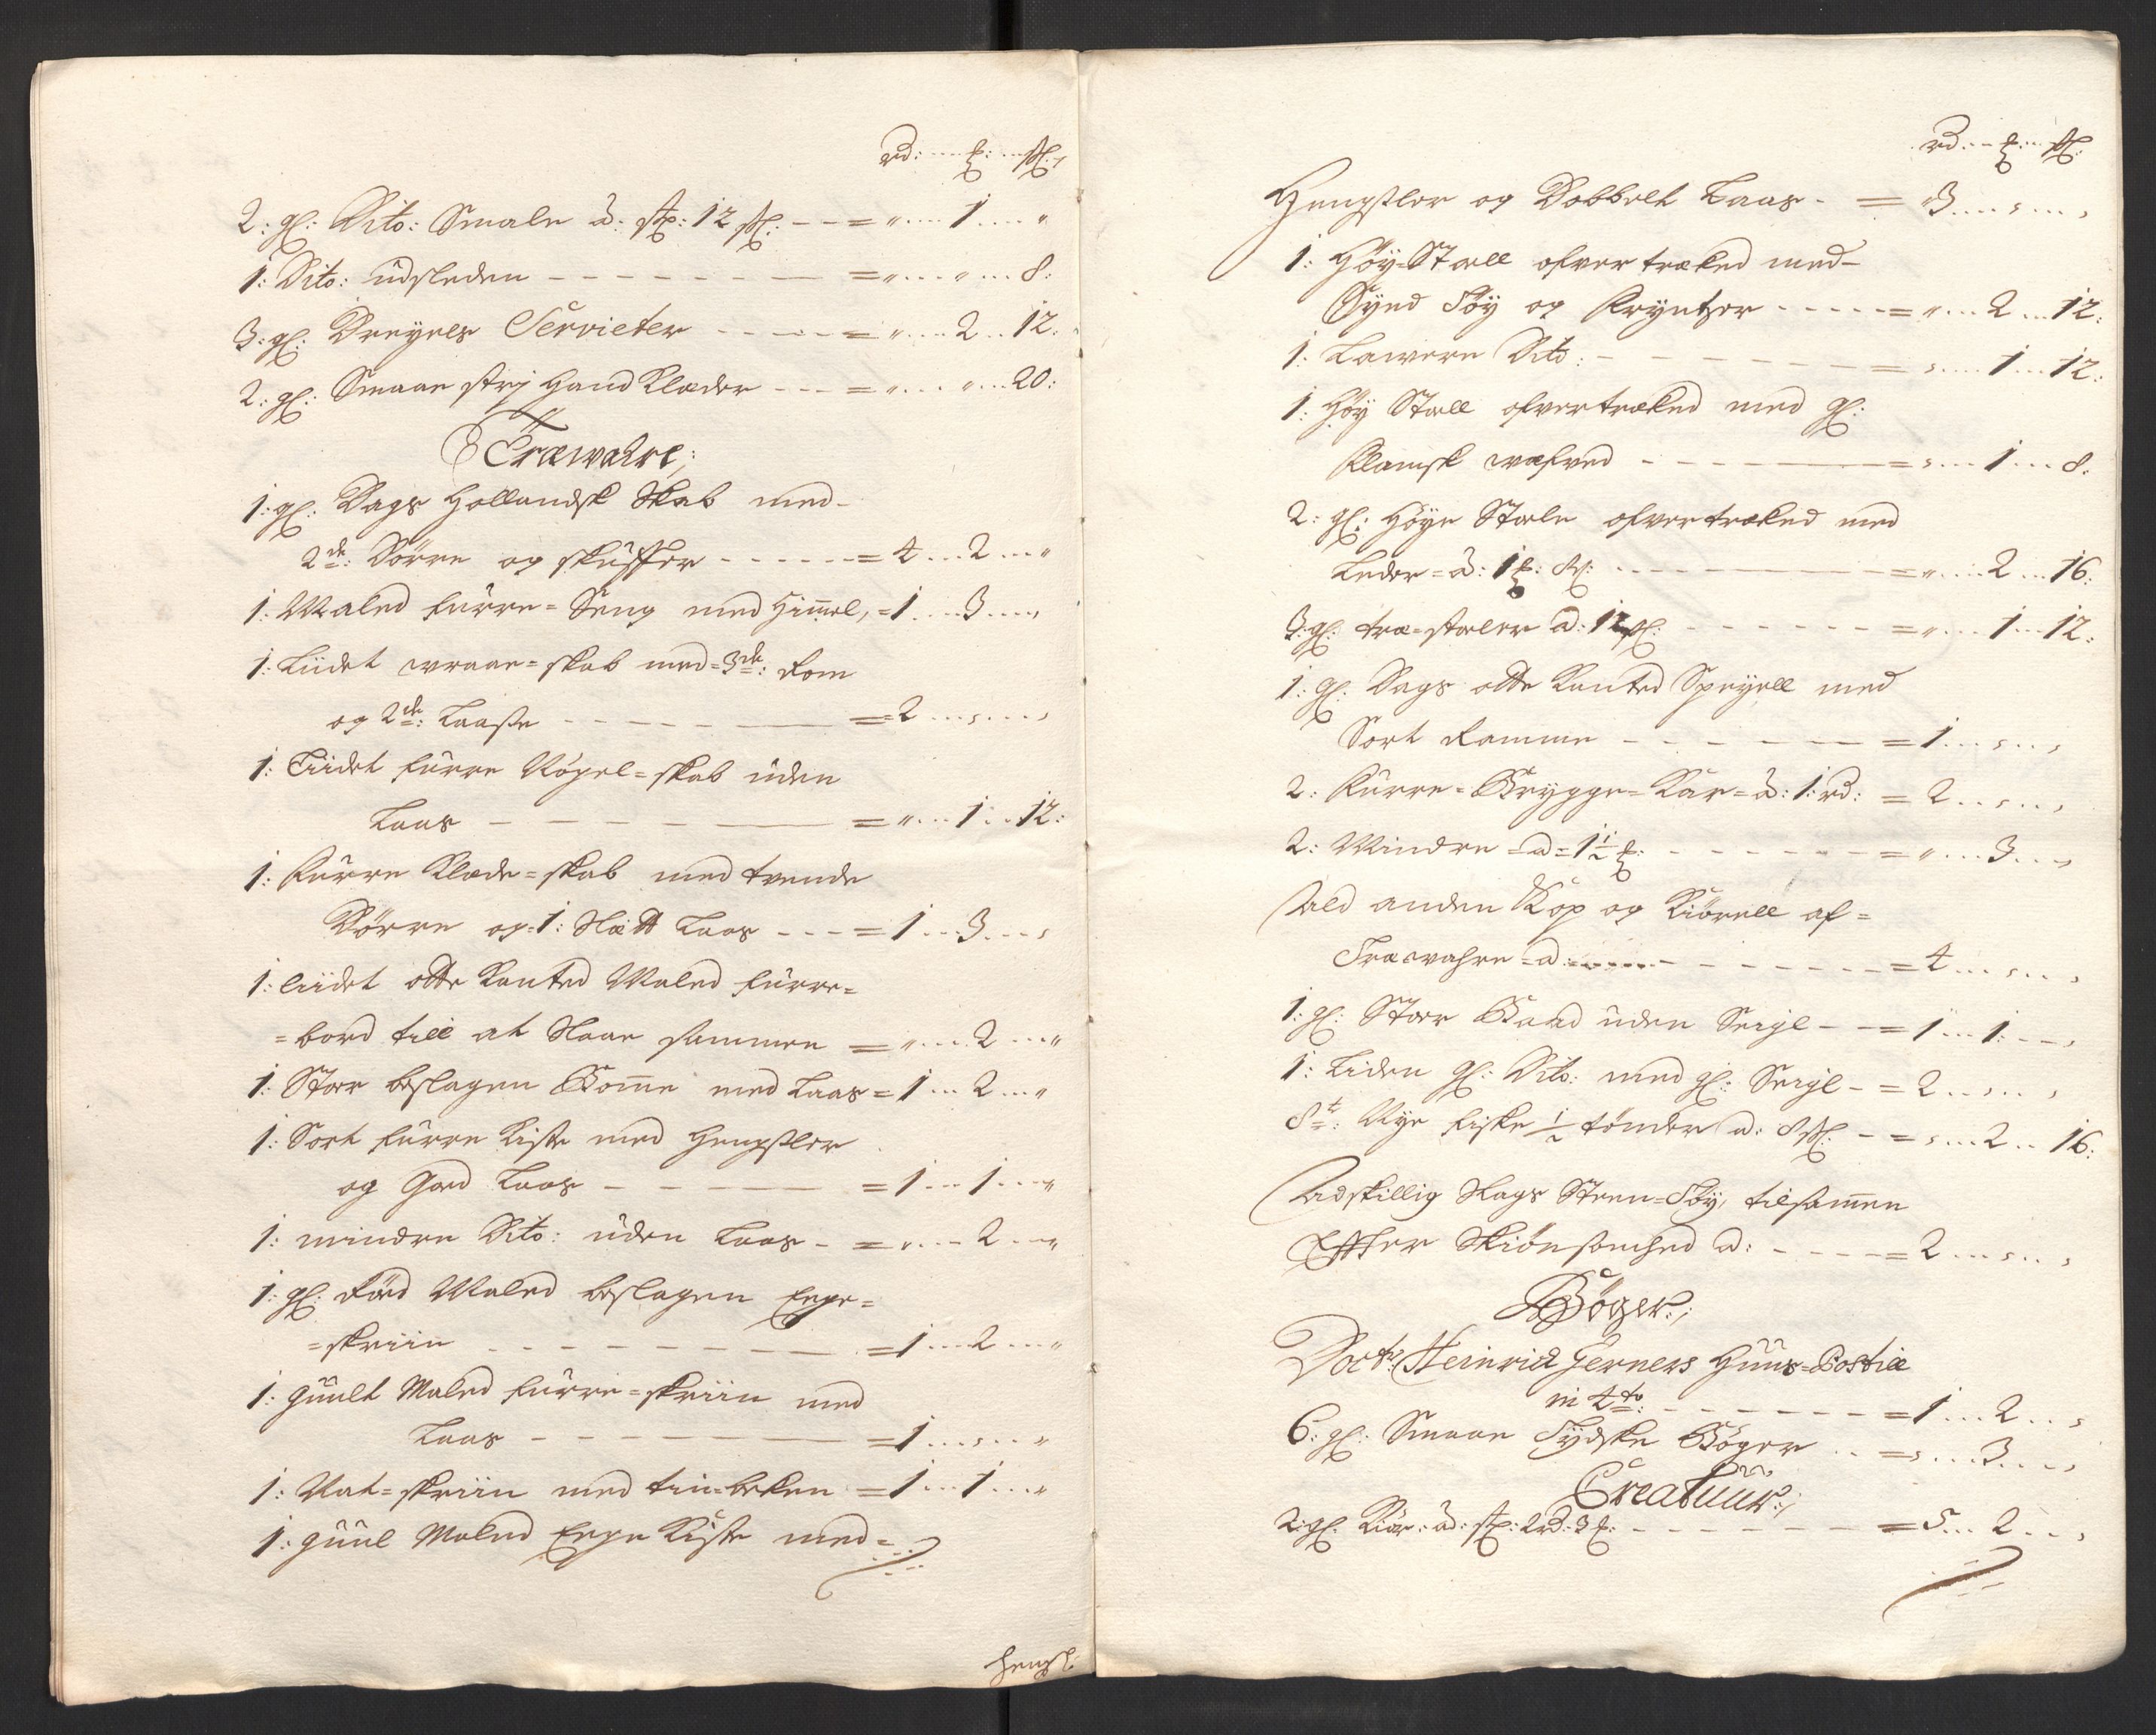 rd: ... ß: ... sk:
2: gl: Dito: Smale â: stk: 12 sk: - - = „ .... 1 .... „
1: Dito: udsleden - - - - - - = „ .... „ .... 8:
3: gl: Dreyels Servieter - - - = „ .... 2 .. 12:
2: gl: Smaae strj Hand Klæder - - - = „ .... „ .... 20:
Træwahre;
1: gl: Dags Hollandsk Skab med-
2de: Dörre og skuffer - - - - - = 4 ... 2 ... „
1: Maled furre= Seng med Himmel, = 1 .... 3 .... „
1: Liidet wraae=skab med=3de: Rom
og 2de: Laasse - - - - - = 2 ... „ ... „
1: Liidet furre Nögel=skab uden
Laas - - - - - = „ ... 1 .. 12:
1: Furre Klæde=skab med tvende
Dörre og 1: Slætt Laas - - - = 1 ... 3 ... „
1: liidet otte Kanted Maled furre=
=bord till at Slaae sammen = „ .... 2 ... „
1: Stoer beslagen Bomme med Laas = 1 ... 2 ... „
1: Sort furre Kiste med Hengsler
og God Laas - - - - = 1 ... 1 ... „
1: mindre Dito: uden Laas - = „ ... 2 ... „
1: gl: Röd Maled beslagen Eege=
=skriin - - - - - = 1 ... 2 ... „
1: guult Maled furre=skriin med
Laas - - - - - = 1 ... „ ... „
1: Nat=skriin med tin=beken = 1 ... 1 ... „
1: guul Maled Eege Kiste med=
hengsl:
rd: ... ß: ... sk:
Hengsler og Dobbelt Laas - = 3 .... „ .... „
1: Höy=Stoell ofvertræked med-
Syed Töy og Fryntzer - - - - - = „ ... 2 ... 12:
1: Lawere Dito: - - - - - = „ .... 1 ... 12:
1: Höy Stoell ofvertræked med gl:
Flamsk wæfved - - - - - = „ ... 1 ... 8.
2: gl: Höye Stoele ofvertræked med
Leder=â: 1 ß: 8 sk: - - - - = „ .... 2 ... 16:
3: gl: træ=stoeler â: 12 sk: - - - - - = „ .... 1 ... 12:
1: gl: Dags otte Kanted Speyell med
Sort Ramme - - - - - = 1 ... „ ... „
2: Furre=Brygge=Kar=â: 1: rd: = 2 ... „ ... „
2: Mindre =â=1 1/2 ß: - - - - - = „ ... 3 ... „
Ald anden Kop og Kiörell af=
Træwahre=â: - - - - - = 4 ... „ ... „
1: gl: Stoer Baad uden Seigl - - = 1 ... 1: ... „
1: Liden gl: Dito: med gl: Seigl - = 2 ... „ ... „
8te: Nye fiske 1/2 tönder â: 8 sk: - = „ ... 2 .. 16:
Adskillig Slags Steen=Töy, tilsammen
Effter Skiönsomhed â: - - - - = 2 ... „ ... „
Böger;
Doctr: Heinrich Gerners Huus=Postill
in 4to: - - - - - = 1 ... 2 ... „
6: gl: Smaae Tydske Böger .. = „ .... 3 .... „
Creatuur;
2: gl: Kiör: â: stk: 2 rd: 3 ß: - - - - - = 5 ... 2 ... „